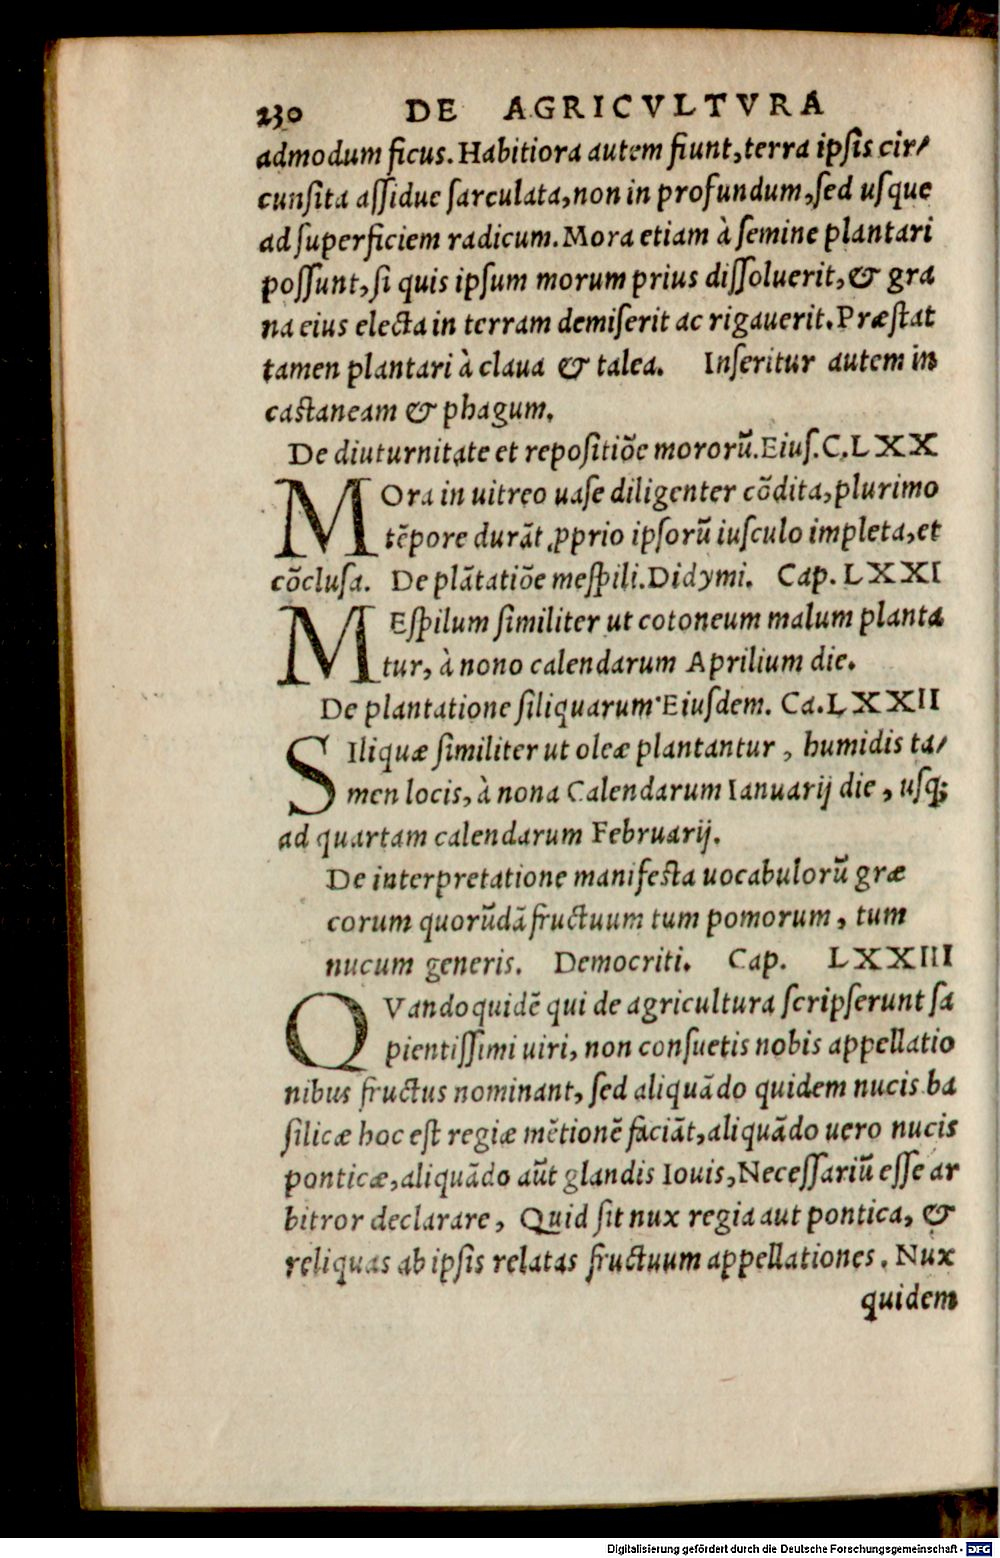 230 DE AGRICVLTVRA
admodum ficus. Habitiora autem fiunt, terra ipsis cir/
cunsita assidue sarculata, non in profundum, sed usque
ad superficiem radicum. Mora etiam à semine plantari
possunt, si quis ipsum morum prius dissoluerit, & gra
na eius electa in terram demiserit ac rigauerit. Præstat
tamen plantari à claua & talea. Inseritur autem in
castaneam & phagum.
De diuturnitate et repositiõe mororũ. Eius. C. LXX
MOra in uitreo uase diligenter cõdita, plurimo
tẽpore durãt ꝓprio ipsorũ iusculo impleta, et
cõclusa. De plãtatiõe mespili. Didymi. Cap. LXXI
MEspilum similiter ut cotoneum malum planta
tur, à nono calendarum Aprilium die.
De plantatione siliquarum. Eiusdem. Ca. LXXII
SIliquæ similiter ut oleæ plantantur, humidis ta/
men locis, à nona Calendarum Ianuarij die, usq;
ad quartam calendarum Februarij.
De interpretatione manifesta uocabulorũ græ
corum quorũdã fructuum tum pomorum, tum
nucum generis. Democriti. Cap. LXXIII
QVandoquidẽ qui de agricultura scripserunt sa
pientissimi uiri, non consuetis nobis appellatio
nibus fructus nominant, sed aliquãdo quidem nucis ba
silicæ hoc est regiæ mẽtionẽ faciãt, aliquãdo uero nucis
ponticæ, aliquãdo aũt glandis Iouis, Necessariũ esse ar
bitror declarare, Quid sit nux regia aut pontica, &
reliquas ab ipsis relatas fructuum appellationes. Nux
quidem
Digitalisierung gefördert durch die Deutsche Forschungsgemeinschaft - DFG